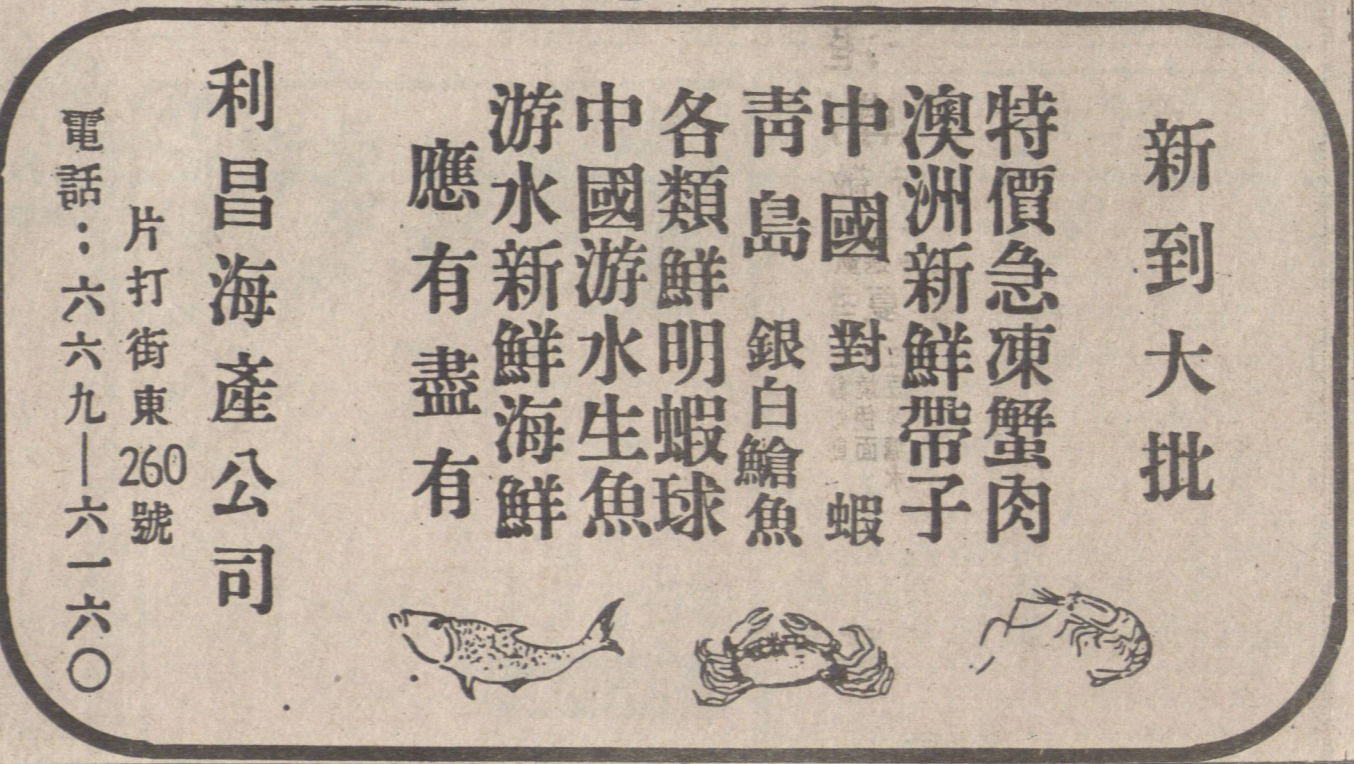 新到大批
特價急凍蟹肉
澳洲新鮮帶子
中國對蝦
靑島銀白鱠魚
各類鮮明蝦球
中國游水生魚
游水新鮮海鮮
應有盡有
利昌海產公司
片打街東260號
電話：六六九—六一六〇